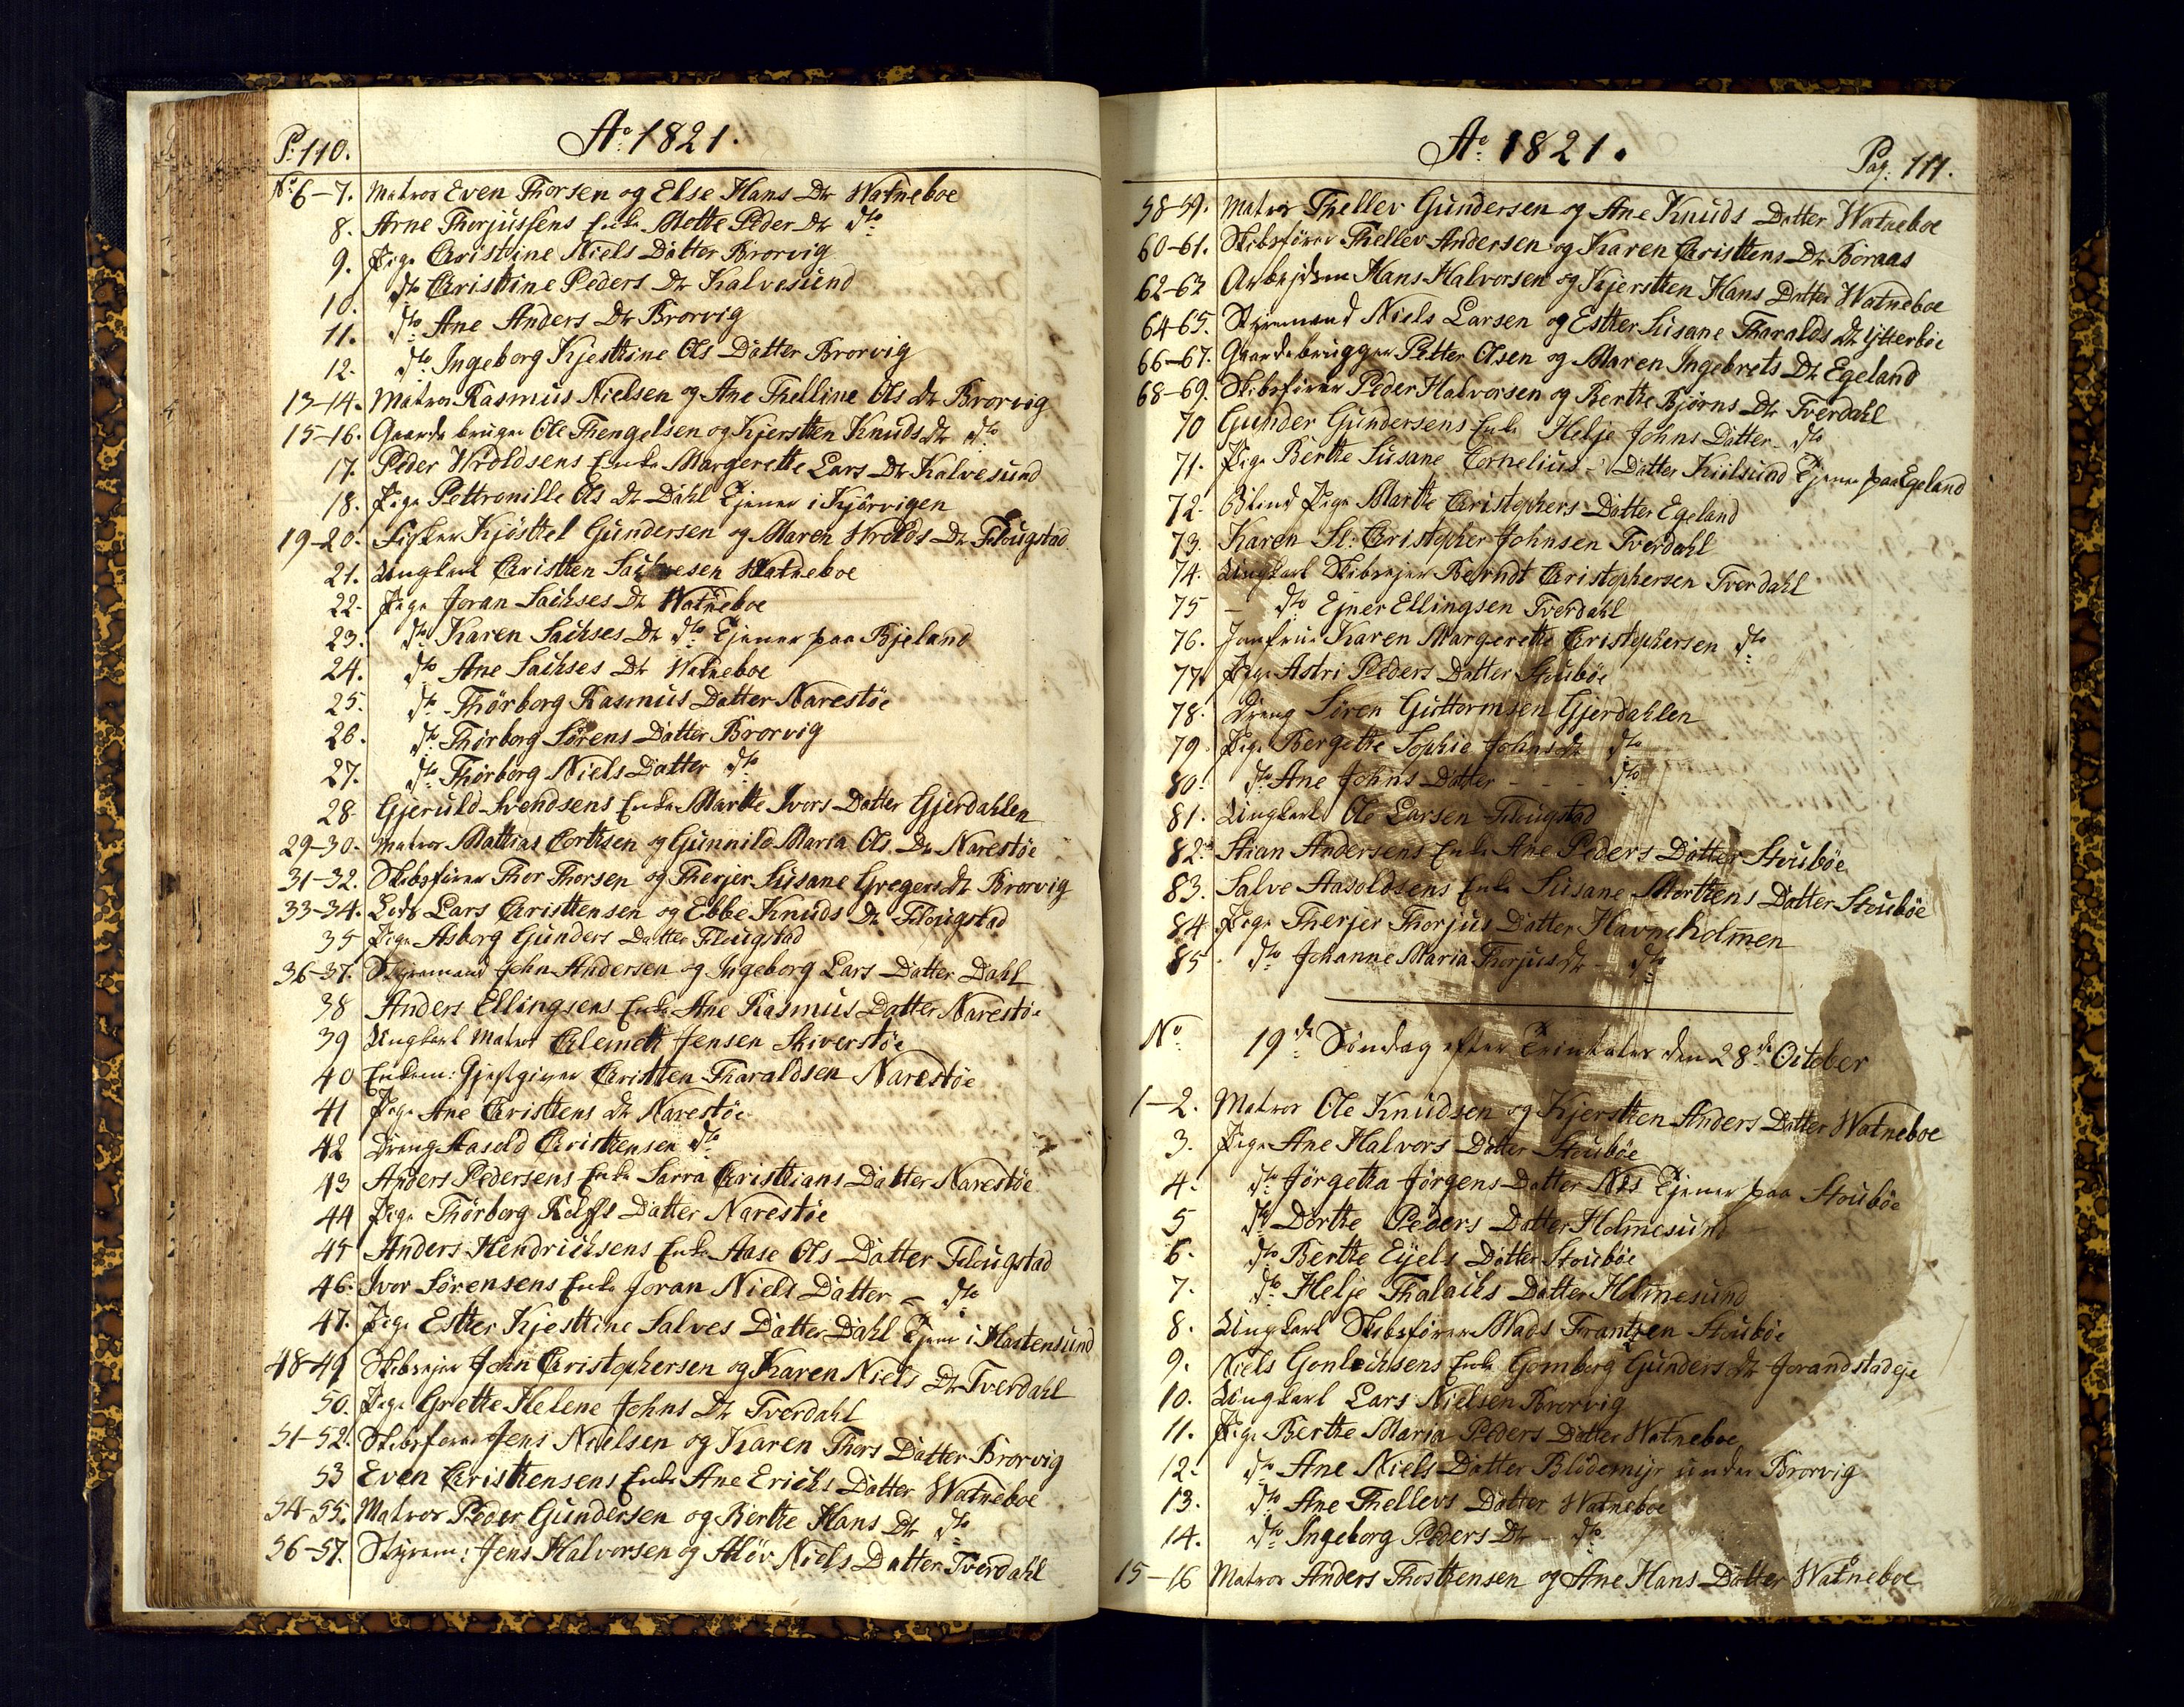 P: 110.
Ao: 1821.
No: 6-7. Matros Even Thorsen og Else Hans Dr Watneboe
8. Arne Thorjussens Enke Mette Peder Dr dto
9. Pige Christine Niels Datter Brorvig
10. dto Christine Peders Dr Kalvesund
11. dto Ane Anders Dr Brorvig
12. dto Ingeborg Kjesthine Ols Datter Brorvig
13-14. Matros Rasmus Nielsen og Ane Thelline Ols Dr Brorvig
15-16. Gaardsbruger Ole Thengelsen og Kjersthen Knuds Dr dto
17. Peder Wroldsens Enke Margerette Lars Dr Kalvesund
18. Pige Pettronille Ols Dr Dahl Tjener i Kjörvigen
19-20. Fisker Kjösttel Gundersen og Maren Wrolds Dr Flougstad
21. Ungkarl Christen Watneboe
22. Pige Joran Sachses Dr Watneboe
23. dto Karen Sachses Dr dto Tjener paa Bjeland
24. dto Ane Sachses Dr Watneboe
25. dto Thörborg Rasmus Datter Narestöe
26. dto Thörborg Sörens Datter Brorvig
27. dto Thörborg Niels Datter dto
28. Gjeruld Svendsens Enke Marthe Ivers Datter Gjerdahlen
29-30. Matros Mathias Corthsen og Gunnild Maria Ols Dr Narestöe
31-32. Skibsförer Thor Thorsen og Therjer Susane Gregers Dr Brorvig
33-34. Lods Lars Christensen og Ebbe Knuds Dr Flougstad
35 Pige Asborg Gunders Datter Flougstad
36-37. Styremand John Andersen og Ingeborg Lars Datter Dahl
38 Anders Ellingsens Enke Ane Rasmus Datter Narestöe
39 Ungkarl Matros Clemett Jensen Skiverstöe
40 Enkem: Gjestgiver Christen Tharaldsen Narestöe
41 Pige Ane Christens Dr Narestöe
42 Dreng Aasold Christensen dto
43 Anders Pedersens Enke Sarra Christians Datter Narestöe
44 Pige Thörborg Rolfs Datter Narestöe
45 Anders Hendrichsens Enke Aase Ols Datter Flougstad
46. Iver Sörensens Enke Joran Niels Datter - dto
47. Pige Esther Kjesthine Salves Datter Dahl Tjener i Hastensund
48-49 Skibsejer John Christophersen og Karen Niels Dr Tverdahl
50. Pige Grethe Helene Johns Dr Tverdahl
51-52. Skibsförer Jens Nielsen og Karen Thors Datter Brorvig
53 Even Christensens Enke Ane Erichs Datter Watneboe
54-55. Matros Peder Gundersen og Berthe Hans Dr dto
56-57. Styrem: Jens Halvorsen og Alöv Niels Datter Tverdahl
Ao 1821.
Pag: 111.
58-59. Matros Thellev Gundersen og Ane Knuds Datter Watneboe
60-61. Skibsförer Thellev Andersen og Karen Christens Dr Boraas
62-63 Arbejdsm Hans Halvorsen og Kjersthen Hans Datter Watneboe
64-65. Styremand Niels Larsen og Esther Susane Tharalds Dr Ytterböe
66-67. Gaardsbrugger Petter Olsen og Maren Ingebrets Dr Egeland
68-69. Skibsförer Peder Halvorsen og Berthe Björns Dr Tverdahl
70 Gunder Gundersens Enke Helje Johns Datter dto
71. Pige Berthe Susane Cornelius-Datter Kiilsund Tjener paa Egeland
72. Blind Pige Marthe Christophers Datter Egeland
73. Karen Sl: Christopher Johnsen Tverdahl
74. Ungkarl Skibsejer Berndt Christophersen Tverdahl
75 - dto Ejner Ellingsen Tverdahl
76. Jomfrue Karen Margerethe Christophersen dto
77. Pige Astri Peders Datter Stouböe
78. Dreng Sören Guttormsen Gjerdahlen
79. Pige Bergethe Sophie Johns Dr dto
80. dto Ane Johns Datter - - - dto
81. Ungkarl Ole Larsen Flougstad
82. Stian Andersens Enke Ane Peders Datter Stouböe
83. Salve Aasoldsens Enke Susane Morthens Datter Stouböe
84. Pige Therjer Thorjus Datter Havneholmen
85. dto Johanne Maria Thorjus Dr - dto
No 19de Söndag efter Trinitatis den 28de October
1-2. Matros Ole Knudsen og Kjersthen Anders Datter Watneboe
3. Pige Ane Halvors Datter Stouböe
4. dto Jörgetha Jörgens Datter Næs Tjener paa Stouböe
5 dto Dorthe Peders Datter Holmesund
6. dto Berthe Eyels Datter Stouböe
7. dto Helje Thalachs Datter Holmesund
8. Ungkarl Skibsförer Mads Frantzen Stouböe
9. Niels Gonlichsens Enke Gomborg Gunders Dr Jorandstadeje
10. Ungkarl Lars Nielsen Brorvig
11. Pige Berthe Maria Peders Datter Watneboe
12. dto Ane Niels Datter Blödemyr under Brorvig
13. dto Ane Thellevs Datter Watneboe
14. dto Ingeborg Peders Dr - dto
15-16 Matros Anders Thosthensen og Ane Hans Datter Watneboe